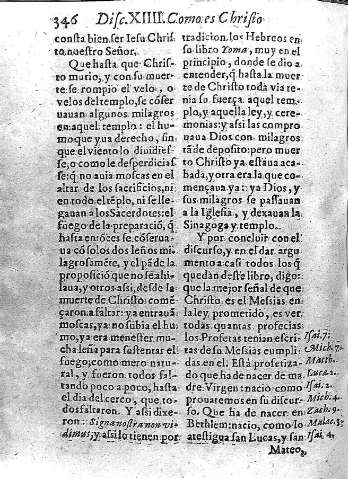 346 Disc. XIIII. Como es Christo
consta bien ser Iesu Christo nuestro Señor.
to nuestro Señor.
Que hasta que Christo
murio, y con su muerte
se rompio el velo, o
velos del templo, se cõseruauan
algunos milagros
en aquel templo: el humo
que yua derecho, sin
que el viento lo diuidiesse,
o como le desperdiciasse:
q̃ no auia moscas en el
altar de los sacrificios, ni
en todo el tẽplo, ni se llegauan
a los Sacerdotes: el
fuego de la preparació, q̃
hasta entõces se cõseruaua
cõ solos dos leños milagrosamẽte,
y el pã de la
proposició que no se añilaua,
y otros assi, desde la
muerte de Christo comẽçaron
a faltar: ya entrauã
moscas, ya no subia el humo,
ya era menester mucha
leña para sustentar el
fuego, como mero natural,
y fueron todos faltando
poco a poco, hasta
el dia del cerco, que todos
faltaron. Y assi dixeron:
Signa nostra non vidimus,
y assi lo tienen por
tradicion los Hebreos en
su libro Yoma, muy en el
principio, donde se dio a
entender, q̃ hasta la muerte
de Christo toda via tenia
so fuerça aquel templo,
y aquella ley, y ceremonias:
y assi las comprouaua
Dios con milagros
tã de deposito: pero muerto
Christo ya estaua acabada,
y otra era la que començaua
ya: ya Dios, y
sus milagros se passauan
a la Iglesia, y dexauan la
Sinagoga y templo.
Y por concluir con el
discurso, y en el dar argumento
a casi todos los q̃
quedan deste libro, digo:
que la mejor señal de que
Christo es el Messias en
la ley prometido, es ver
todas quantas profecias
los Profetas tenian escritas
de su Messias cumplidas
en el. Està profetizado
que ha de nacer de madre
Virgen: nacio como
prouaremos en su discurso.
Que ha de nacer en
Bethlem: nacio, como lo
atestigua san Lucas, y san
Isai. 7.
Mich. 7.
Matth.
Luca. 2.
Isai. 2.
Mich. 4.
Zach. 9.
Marc. 3.
Isai. 4.
Mateo,